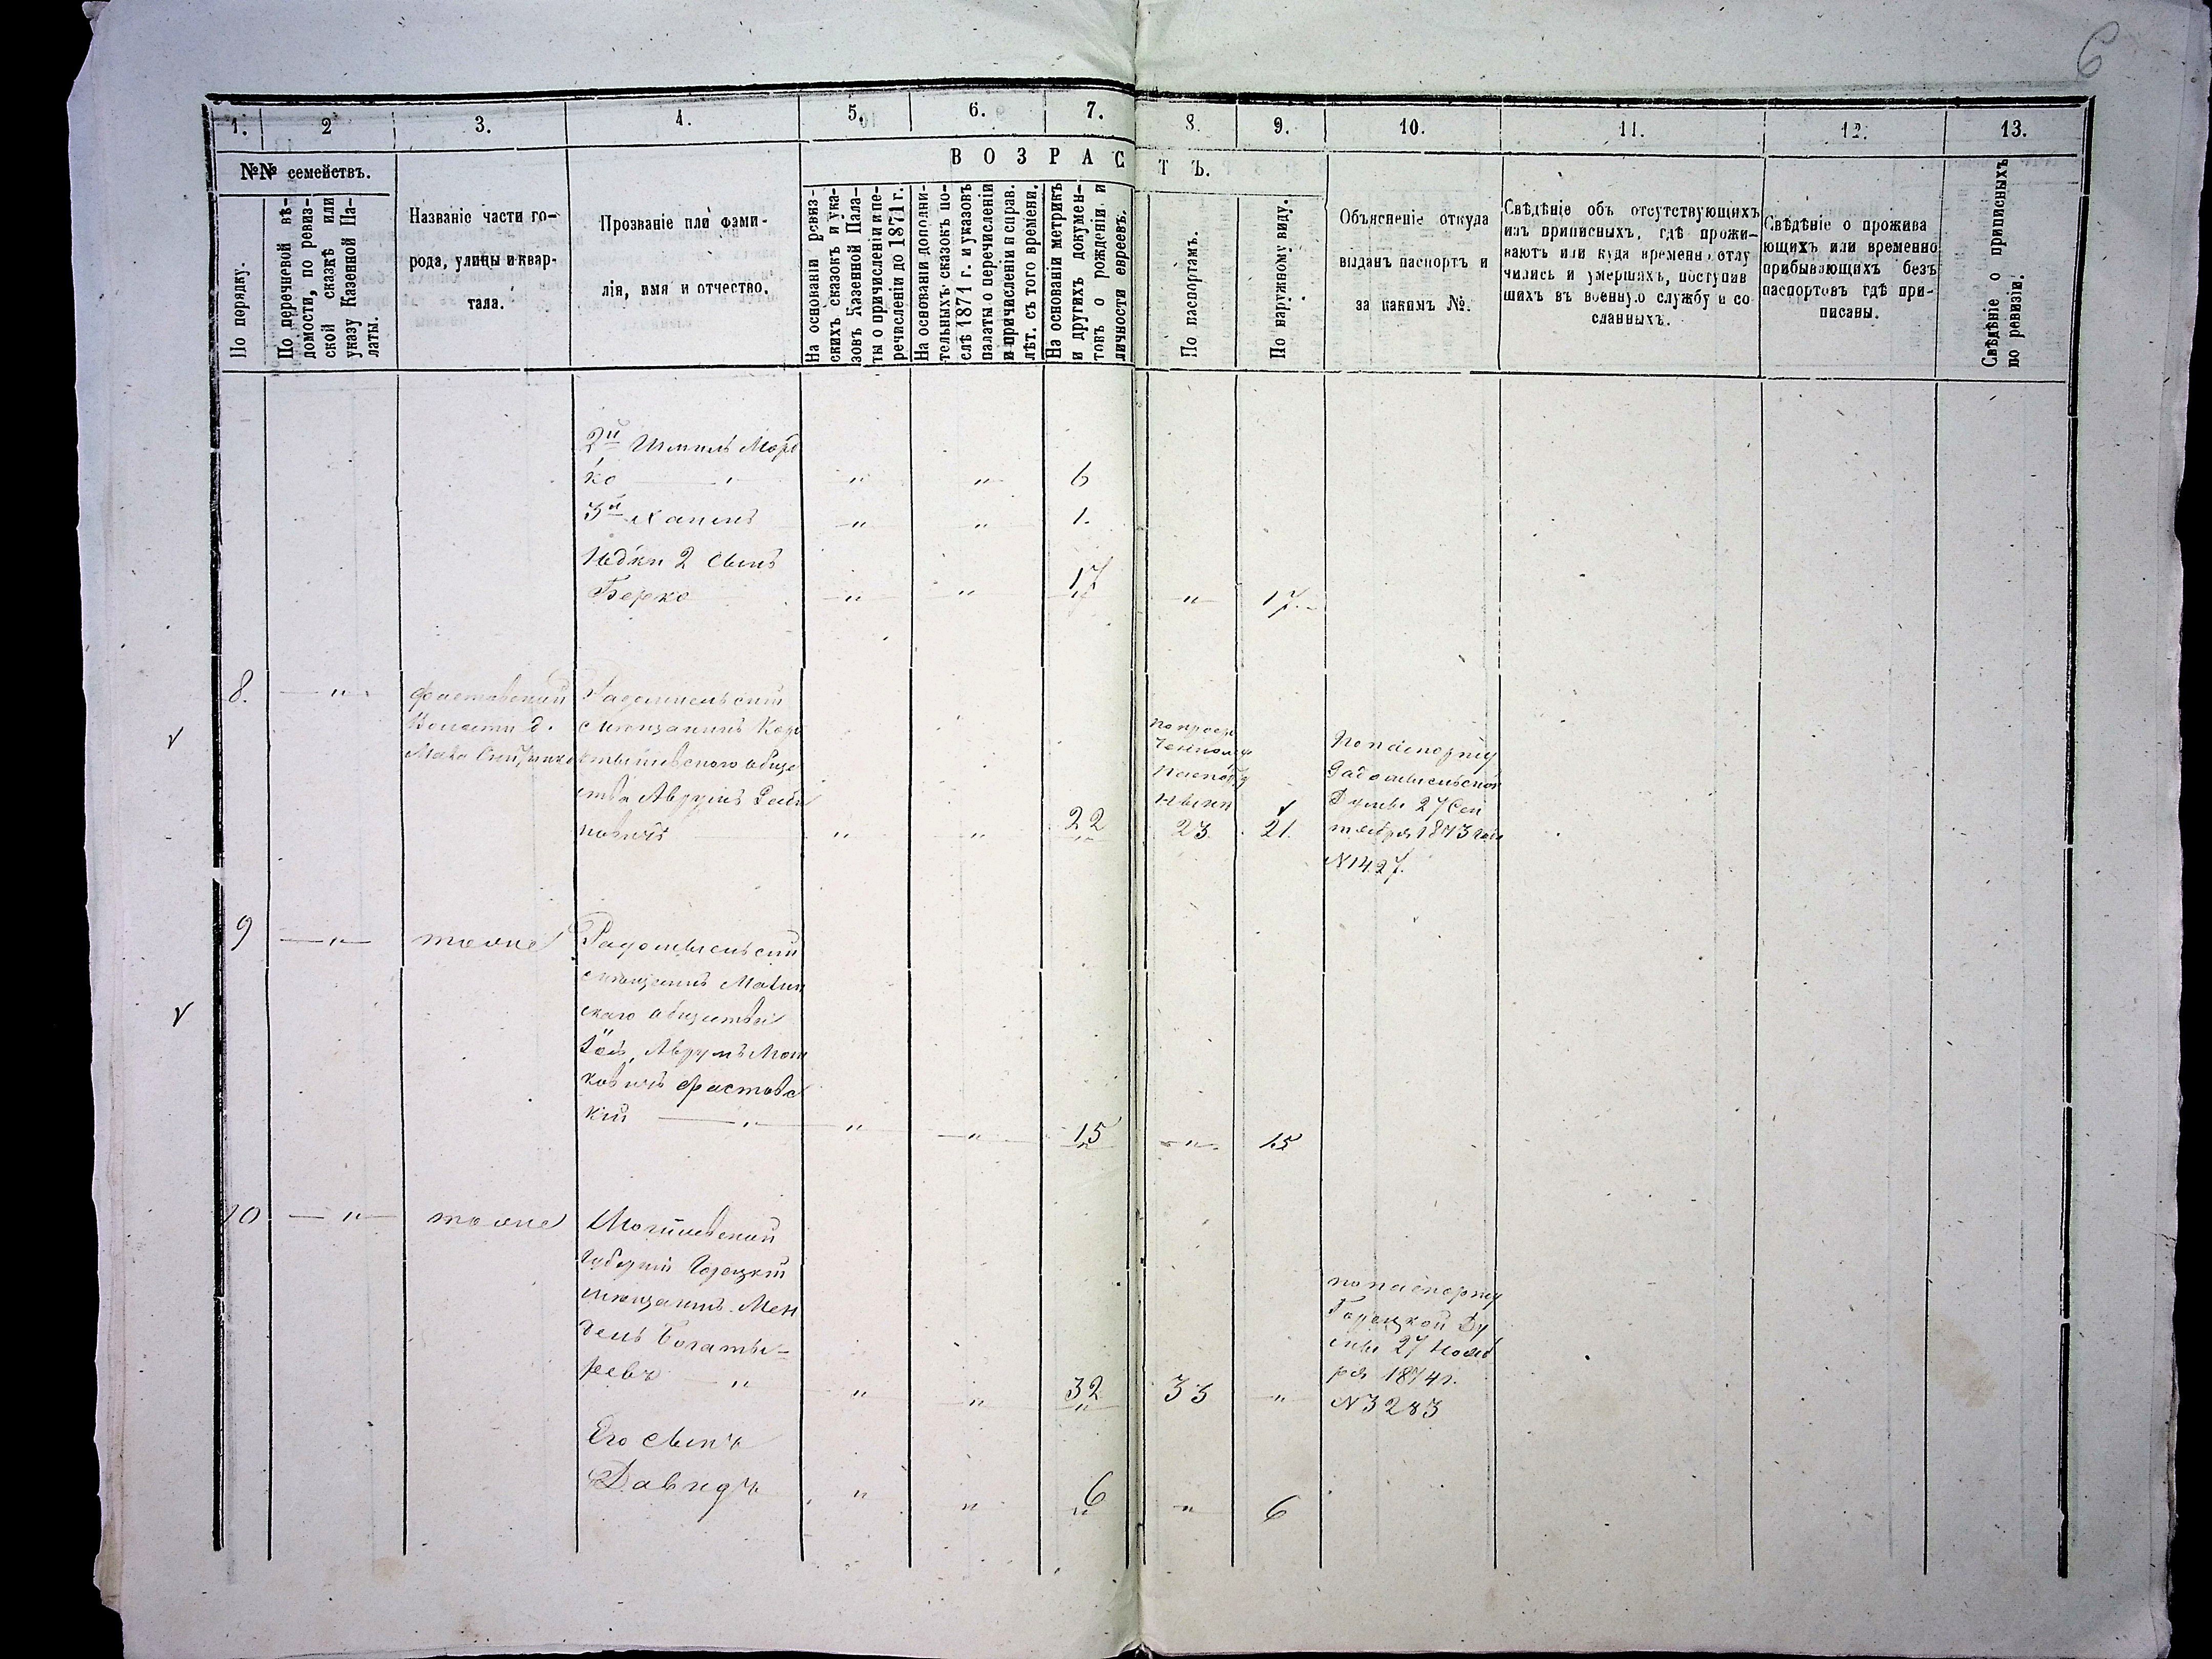 6
1. 2 3. 4. 5. 6. 7. 8. 9. 10. 11. 12. 13.
№№ семействъ.
По порядку.
По перечневой вѣ-
домости, по ревиз-
ской сказкѣ или
указу Казенной Па-
латы.
Названіе части го-
рода, улицы и квар-
тала.
Прозваніе или фами-
лія, имя и отчество.
ВОЗРАСТЪ.
На основаніи ревиз-
скихъ сказокъ и ука-
зовъ Казенной Пала-
ты о причисленіи и пе-
речисленіи до 1871 г.
На основаніи дополни-
тельныхъ сказокъ по-
слѣ 1871 г. и указовъ
палаты о перечисленіи
и причисленіи и справ.
лѣт. съ того времіени.
На основаніи метрикъ
и другихъ докумен-
товъ о рожденіи и
личности евреевъ.
По паспортамъ.
По наружному виду.
Объясненіе откуда
выданъ паспортъ и
за какимъ №.
Свѣдѣніе объ отсутствующихъ
изъ приписныхъ, гдѣ прожи-
ваютъ или куда временно отлу
чились и умершихъ, поступив
шихъ въ военную службу и со
сланныхъ.
Свѣдѣніе о прожива
ющихъ или временно
прибывающихъ безъ
паспортовъ гдѣ при-
писаны.
Свѣдѣніе о приписныхъ
по ревизіи.
2й Шмиль Морд
ко " " " 6
3й Хаимъ " " 1.
Юдки 2 сынъ
Берко " " 17 " 17.
8. " Фастовской
Волости д.
Радомысльскій
мѣщанинъ Коро
стышевского обще
ства Аврумъ
" " 22
23. 21.
По паспорту
Радомысльской
Думы 27 Сен
тября 1873 года
N 1427.
9 " тоже
Радомысльскій
мѣщанинъ Малин
скаго общества
Аврумъ Мош
ковичъ Фастовс
кій " " " 15 " 15
10 " тоже
Могилевской
Губерніи Горецкій
мѣщанинъ Мен
дель Богаты-
ревъ " " " 32 33 "
по паспорту
Горецкой Ду
мы 27 Нояб
ря 1874 г.
N 3283
Его сынъ
Давидъ " " 6 " 6